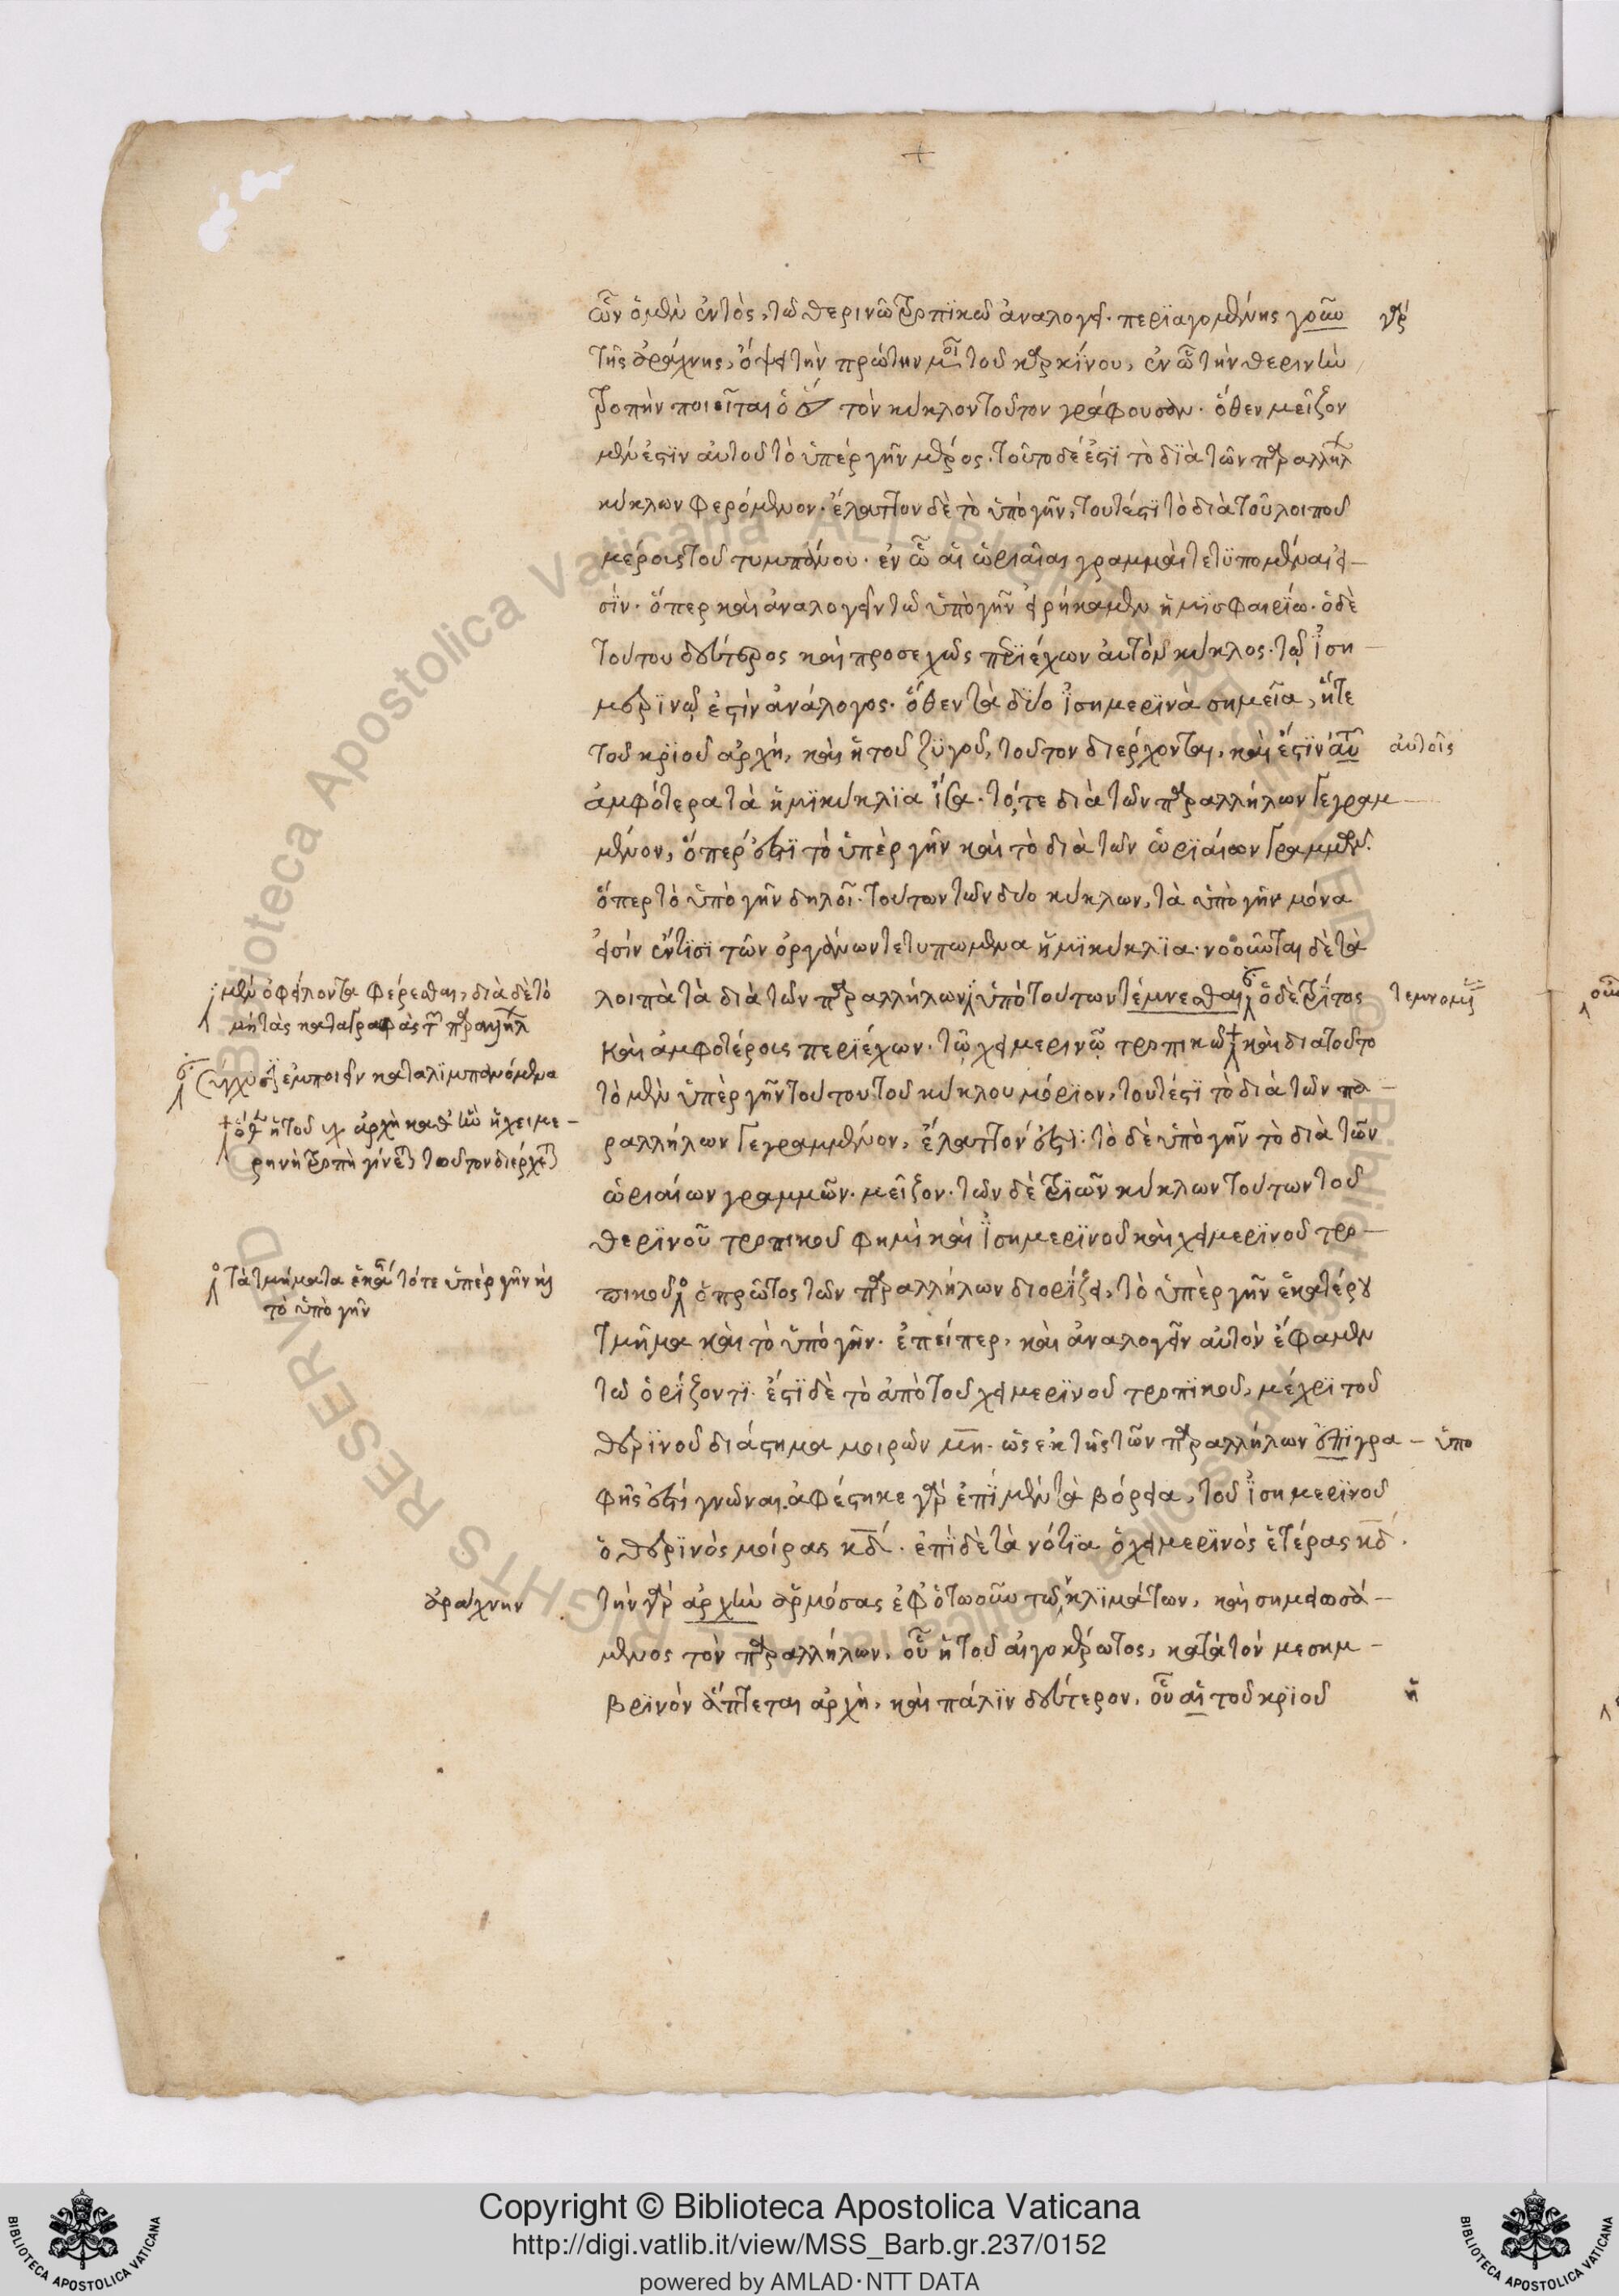 ὧν ὁ μὲν ἐντὸς, τῶ θερινῶ τροπϊκῶ ἀναλογεῖ. περϊαγομένης γοῦν γὰρ
τῆς ἀράχνης, ὄψει τὴν πρώτην μοῖ τοῦ καρκίνου, ἐν ὧ τὴν θερινὴν
τροπὴν ποιεῖται ὁ τὸν κύκλον τοῦτον γράφουσαν. ὅθεν μεῖζον
μέν ἐστϊν αὐτοῦ τὸ ὑπὲρ γῆν μέρος. τοῦτο δέ ἐστϊ τὸ δϊὰ τῶν παραλλήλ
κύκλων φερόμενον. ἔλαττον δὲ τὸ ὑπὸ γῆν, τουτέστϊ τὸ διὰ τοῦ λοιποῦ
μέρους τοῦ τυμπάνου. ἐν ὧ αἱ ὡριαῖαι γραμμὰι τετϋπομέναι εἰ-
σίν. ὅπερ καὶ ἀναλογεῖν τῶ ὑπὸ γῆν εἰρήκαμεν ἡμϊσφαιρίω. ὁ δὲ
τούτου δεύτερος καὶ προσεχῶς περϊέχων ἀυτὸν κύκλος. τῶ ἰση-
μερϊνῶ ἐστὶν ἀνάλογος. ὅθεν τὰ δύο ἰσημερϊνὰ σημεῖα, ἥτε
τοῦ κρϊοῦ ἀρχὴ, καὶ ἡ τοῦ ζϋγοῦ, τοῦτον διέρχονται, καὶ ἔστϊν αὐτ αὐτοῖς
ἀμφότερα τὰ ἡμϊκύκλϊα ἴσα. τό, τε διὰ τῶν παραλλήλων γεγραμ-
μένον, ὅπερ ἐστϊ τὸ ὑπὲρ γῆν καὶ τὸ διὰ τῶν ὡρϊαίων γραμμῶν.
ὅπερ τὸ ὑπὸ γῆν δηλοῖ. τούτων τῶν δύο κύκλων, τὰ ὑπὸ γῆν μόνα
εἰσὶν ἔντϊσϊ τῶν ὀργάνων τετυπωμένα ἡμϊκύκλϊα. νοοῦνται δὲ τὰ
λοιπὰ τὰ διὰ τῶν παραλλήλων ὑπὸ τούτων τέμνεσθαι ὁ δὲ τρίτος
καὶ ἀμφοτέρους περϊέχων. τῶ χειμερινῶ τροπικῶ καὶ διατοῦτο
τὸ μὲν ὑπὲρ γῆν τούτου τοῦ κύκλου μόρϊον, τουτέστϊ τὸ διὰ τῶν πα-
ραλλήλων γεγραμμένον, ἔλαττον ἐστϊ. τὸ δὲ ὑπὸ γῆν τὸ διὰ τῶν
ὡριαίων γραμμῶν. μεῖζον. τῶν δὲ τρϊῶν κύκλων τούτων τοῦ
θερϊνοῦ τροπικοῦ φημὶ καὶ ἰσημερϊνοῦ καὶ χειμερϊνοῦ τρο-
πικοῦ ὁ πρῶτος τῶν παραλλήλων διορϊζει, τὸ ὑπὲρ γῆν ἑκατέρου
τμῆμα καὶ τὸ ὑπὸ γῆν. ἐπείπερ, καὶ ἀναλογεῖν αὐτὸν ἔφαμεν
τῶ ὁρϊζοντϊ. ἔστϊ δὲ τὸ ἀπὸ τοῦ χειμερϊνοῦ τροπϊκοῦ, μέχρϊ τοῦ
θερϊνοῦ διάστημα μοιρῶν μη. ὡς ἐκ τῆς τῶν παραλλήλων ἐπϊγρα- ὑπο
φῆς ἐστὶ γνῶναι. ἀφέστηκε γὰρ ἐπϊ μὲν τὰ βόρεια, τοῦ ἰσημερϊνοῦ
ὁ θερϊνὸς μοίρας κδ. ἐπὶ δὲ τὰ νότϊα ὁ χειμερϊνὸς ἑτέρας κδ.
τὴν γὰρ ἀρχὴν ἁρμόσας ἐφ ὁτωοῦν τῶν κλϊμάτων, καὶ σημειωσά-
μενος τὸν παραλλήλων, οὗ ἡ τοῦ αἰγοκέρωτος, κατὰ τὸν μεσημ-
βρϊνὸν ἅπτεται ἀρχὴ, καὶ πάλϊν δεύτερον, οὗ αἱ τοῦ κρϊοῦ ἡ
μὲν ὀφείλοντα φέρεσθαι, διὰ δὲ τὸ
μὴ τὰς καταγραφὰς
ἐμποιεῖν καταλϊμπανόμενα
ἡ τοῦ ἀρχὴ καθ ἣν ἡ χειμε-
ρηνὴ τροπὴ γίνεται τοῦτον διέρχεται
τὰ τμήματα τότε ὑπὲρ γῆν καὶ
τὸ ὑπὸ γῆν
ἀράχνην
Copyright © Biblioteca Apostolica Vaticana
http://digi.vatlib.it/view/MSS_Barb.gr.237/0152
powered by AMLAD·NTT DATA
BIBLIOTECA APOSTOLICA VATICANA
BIBLIOTECA APOSTOLICA VATICANA